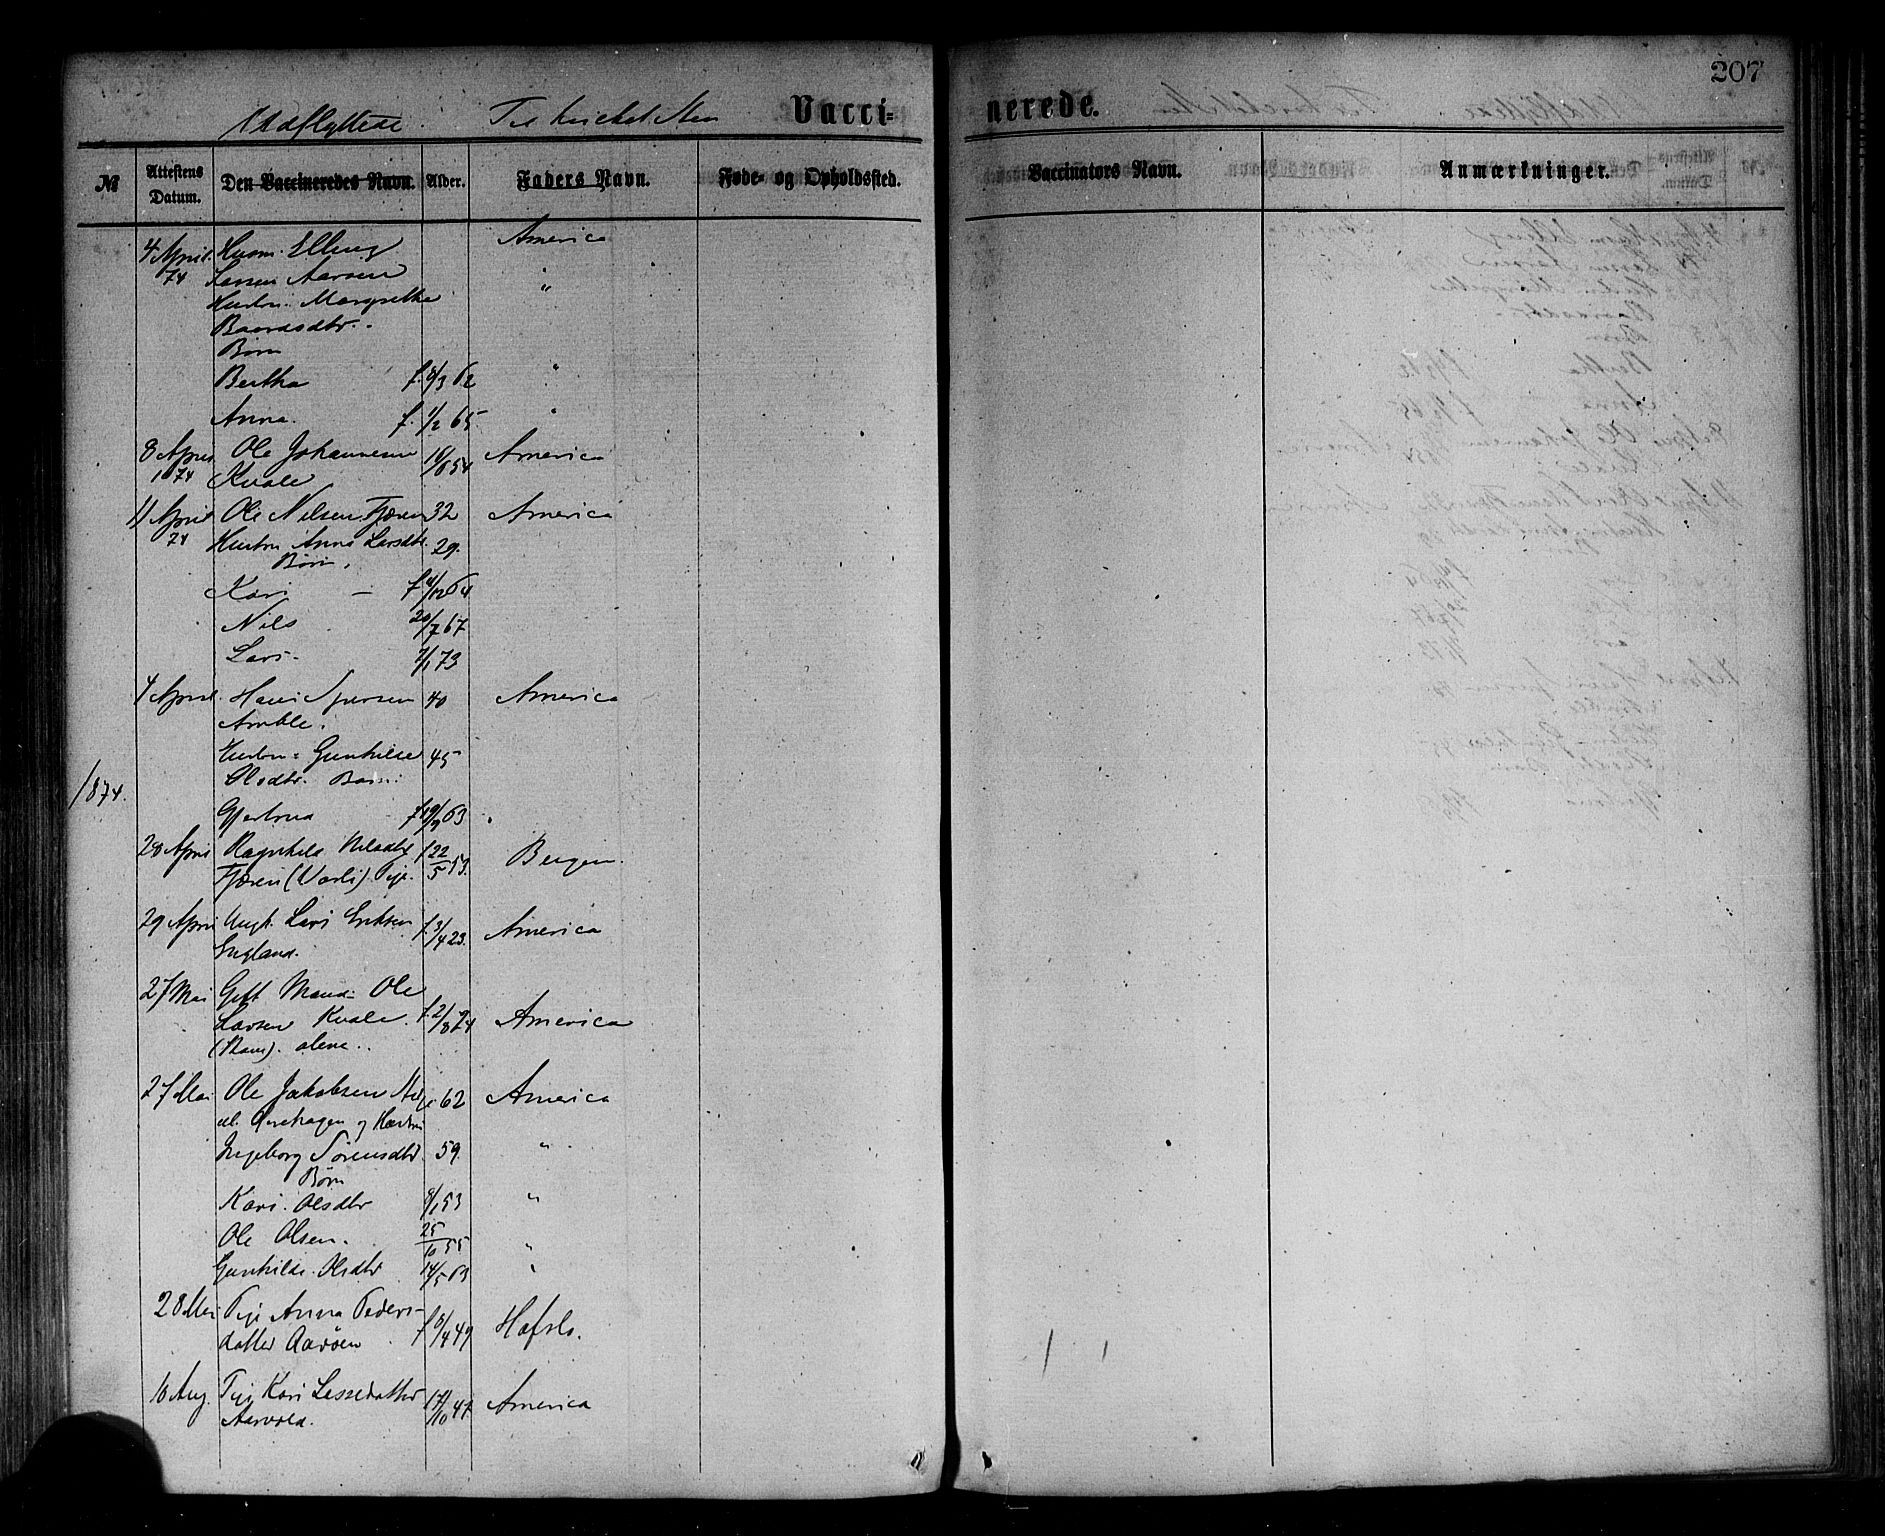 207
Udflyttede. Til hvilket Sted
Vacci= nerede.
№ Attestens Datum. Den Vaccineredes Navn. Alder. Faders Navn. Føde- og Opholdssted. Vaccinators Navn. Anmærkninger.
4 April Husm. Elling America
74 Larsen Aarøen
Hustru Margrethe "
Baardsdtr.
Børn
Bertha f. 8/3 62 "
Anna. f. 1/2 65 "
8 April Ole Johannesen America
1874 Kvale
11 April Ole Nilsen Fjæren 32 America
74 Hustru Anna Larsdtr. 29.
Børn.
Kari f. 4/12 64
Nils 20/7 67
Lars 2/1 73
4 April 40 America
Amble.
Hustru Gunhilde 45
1874.
Olsdtr. Barn:
Gjertrud 63
28 April Ragnhild Nilsdtr f 22/5 53. Bergen.
Fjæren (Varli) Pige
29 April Ungk. Lars Eriksen f. 3/4 23. America
England.
27 Mai Gift Mand Ole
Larsen Kvale f. 2/8 24 America
alene.
27 Mai Ole Jakobsen 62 America
og Hustru
Ingeborg Sørensdtr 59. "
Børn
Kari Olsdtr 8/1 53 "
Ole Olsen. 25/10 55 "
Gunhilde Olsdtr 14/5 63 "
28 Mai Pige Anna Peders-
datter Aarøen f 8/4 49 Hafslo.
10 Aug. Pige Kari Lassedatter 17/10 47 America
Aarvold.